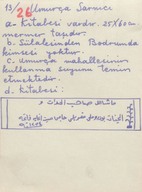 13/26 Umurça Sarnıcı
a- Kitabesi vardır. 25x60cm
mermer taştır.
b. Sülalesinden Bodrumda
kimsesi yoktur.
c. Umurça mahallesinin
kullanma suyunu temin
etmektedir.
d. Kitabesi:
ماشاالله صاحب الخيرات و